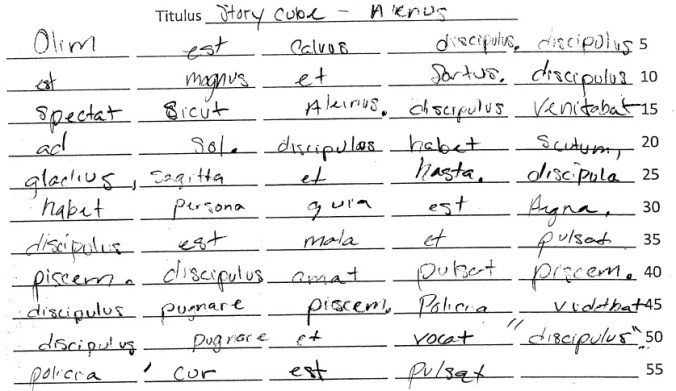 Titulus Story Cube - Alenus
Olim est Calvus discipulus. discipulus 5
est magnus et fortus. discipulus 10
spectat sicut Alenus. discipulus venitabat 15
ad Sol. discipulos habet scutum, 20
gladius, sagitta et hasta. discipula 25
habet persona quia est Magna. 30
discipulus est mala et pulsat 35
piscem. discipulus amat pulsat piscem. 40
discipulus pugnare piscem. Policia vidatbat 45
discipulus pugnare et vocat "discipulus". 50
policia cur est pulsat 55